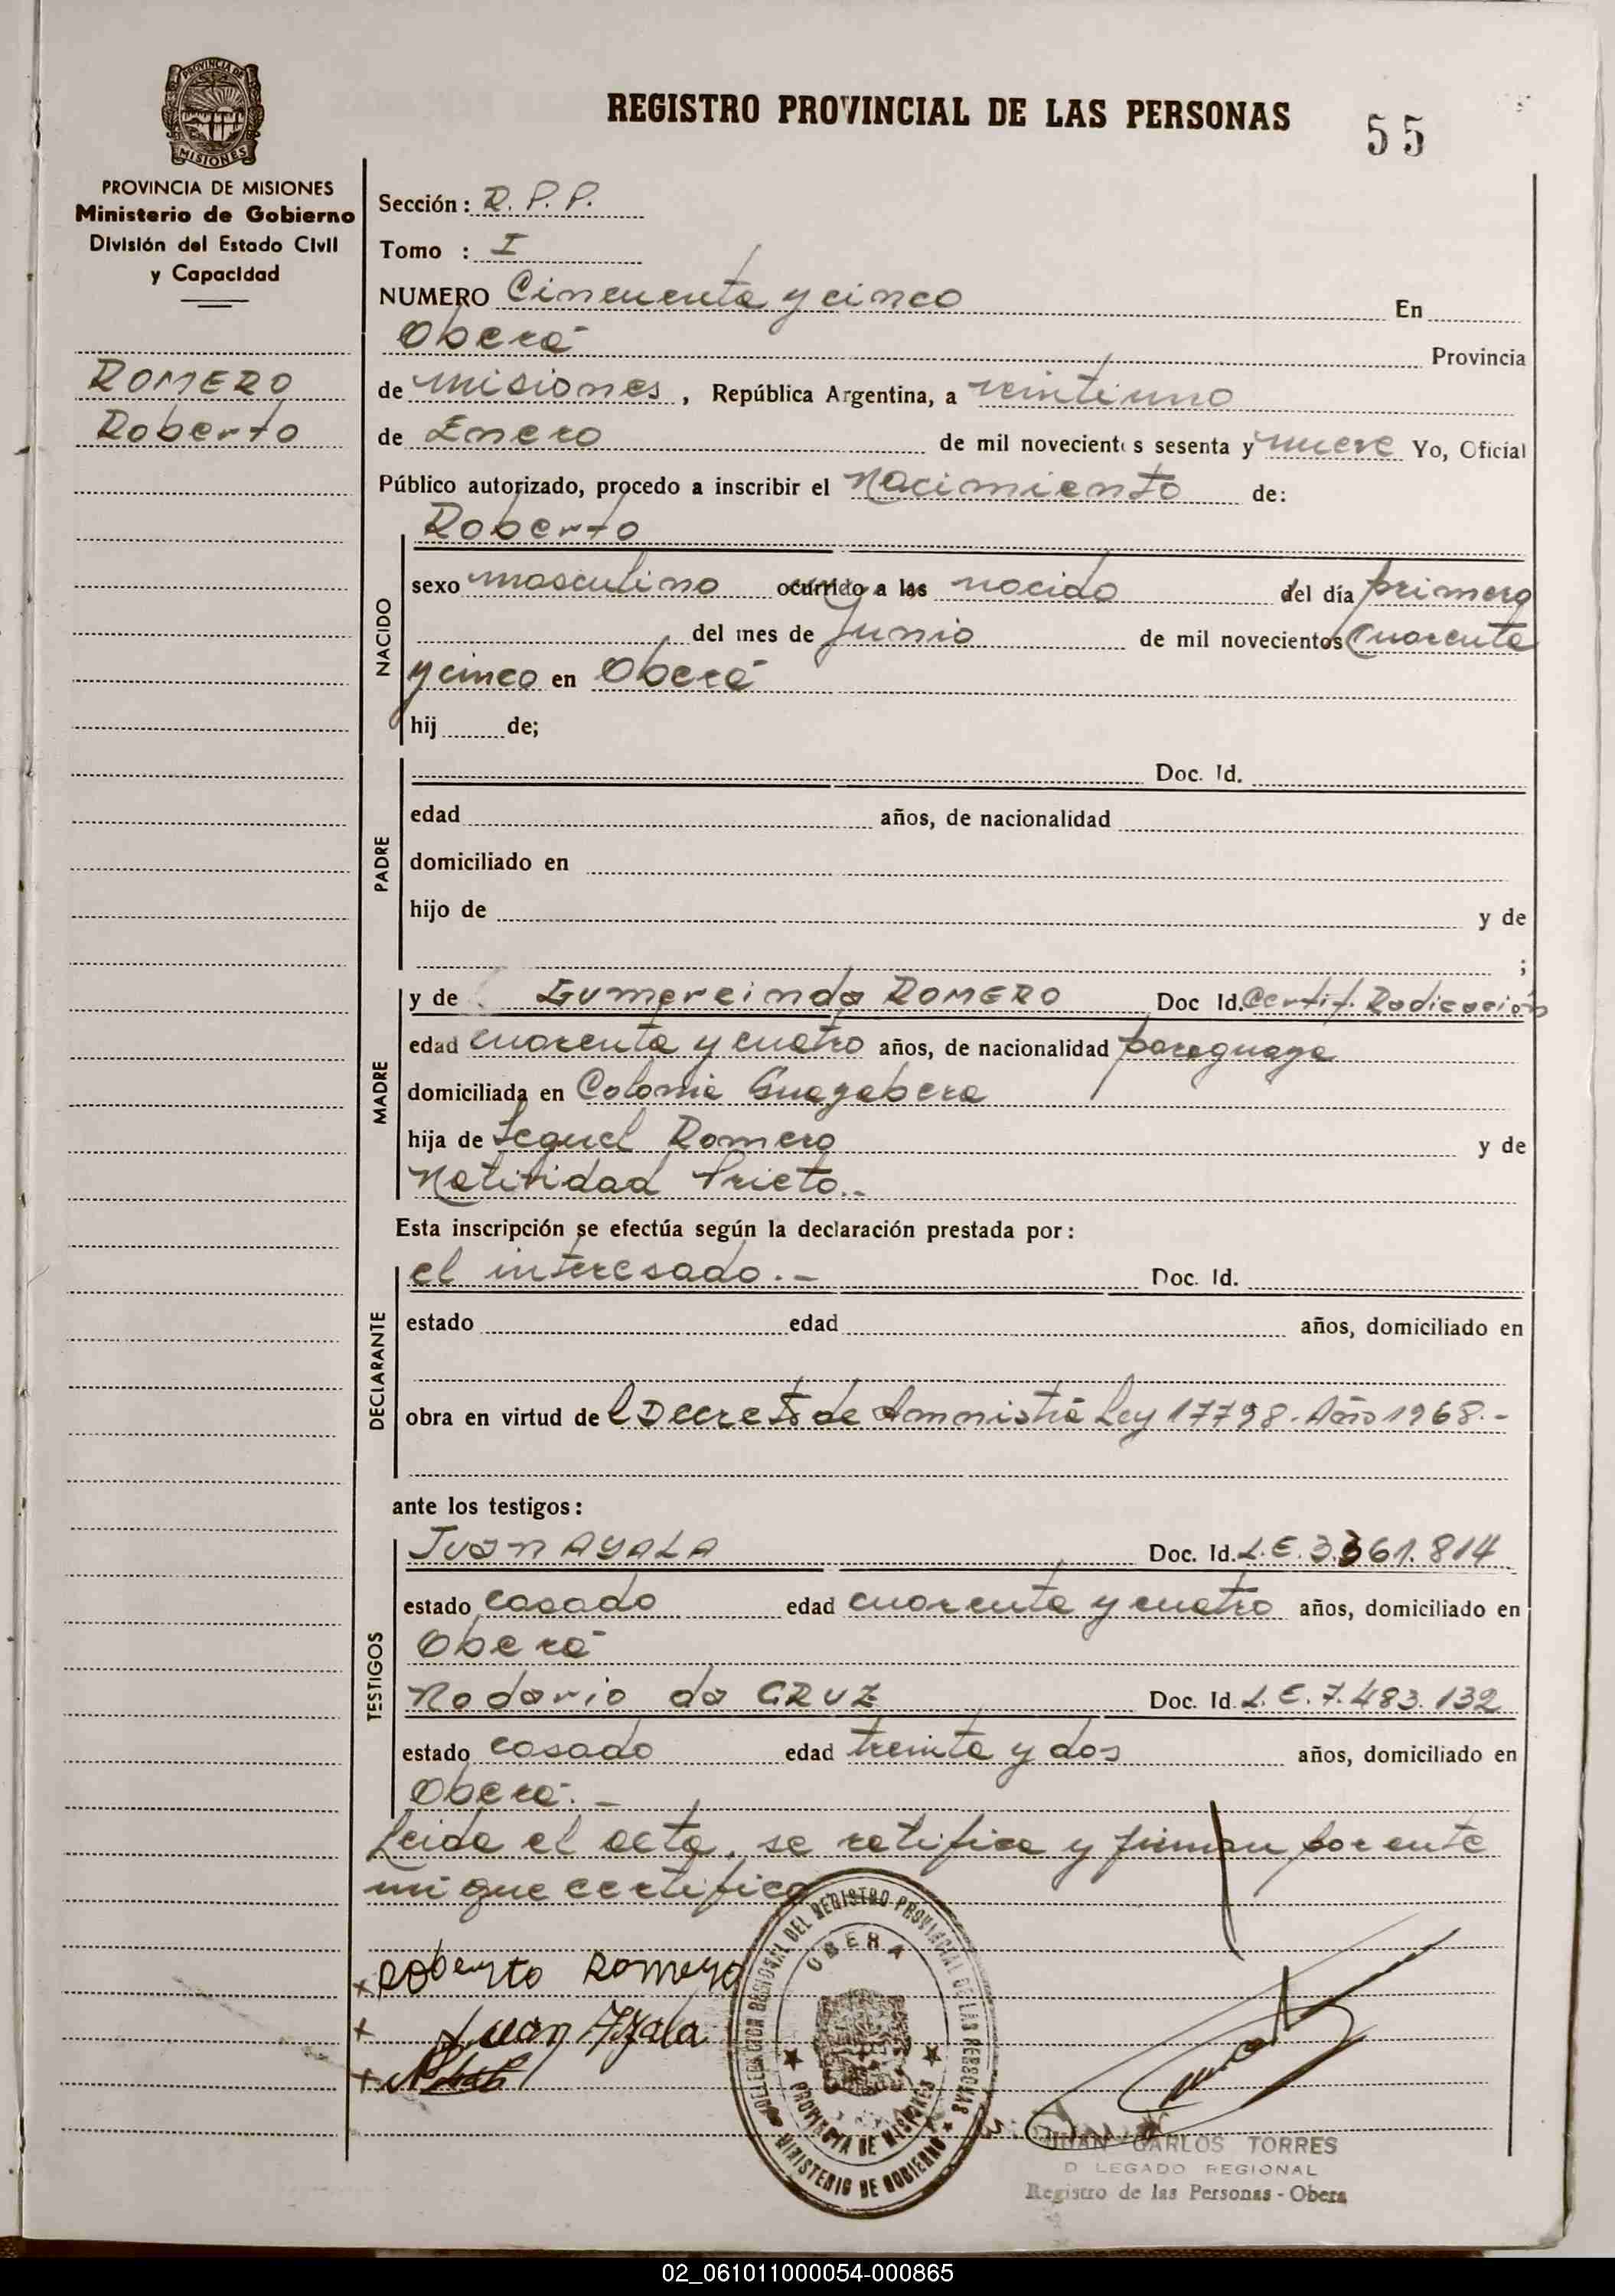 PROVINCIA DE
MISIONES
PROVINCIA DE MISIONES
Ministerio de Gobierno
División del Estado Civil
y Capacidad
ROMERO
Roberto
REGISTRO PROVINCIAL DE LAS PERSONAS 55
Sección: R. P. P.
Tomo : I
NUMERO Cincuenta y cinco En
Oberá Provincia
de Misiones, República Argentina, a veintiuno
de Enero de mil novecientos sesenta y nueve Yo, Oficial
Público autorizado, procedo a inscribir el Nacimiento de:
Roberto
NACIDO
sexo masculino ocurrido a las nacido del día primero
del mes de Junio de mil novecientos cuarenta
y cinco en Oberá
hij de;
PADRE
Doc. Id.
edad años, de nacionalidad
domiciliado en
hijo de y de
;
MADRE
y de Gumercinda ROMERO Doc Id. Certif. Radicación
edad cuarenta y cuatro años, de nacionalidad paraguaya
domiciliada en Colonia Guayabera
hija de Romero y de
Natividad Prieto.-
Esta inscripción se efectúa según la declaración prestada por:
DECLARANTE
el interesado.- Doc. Id.
estado edad años, domiciliado en
obra en virtud del Decreto de Amnistia Ley 17798-Año 1968.-
ante los testigos:
TESTIGOS
Juan AYALA Doc. Id. L.E. 3.361.814
estado casado edad cuarenta y cuatro años, domiciliado en
Oberá
da CRUZ Doc. Id. L.E. 7.483.132
estado casado edad treinta y dos años, domiciliado en
Oberá.-
Leida el acta, se ratifica y firman por ante
mi que certifico
x Roberto Romero
x Juan Ayala
x
DELEGACION REGIONAL DEL REGISTRO PROVINCIAL DE LAS PERSONAS
OBERA
PROVINCIA DE MISIONES
MINISTERIO DE GOBIERNO
JUAN CARLOS TORRES
D LEGADO REGIONAL
Registro de las Personas - Obera
02_061011000054-000865